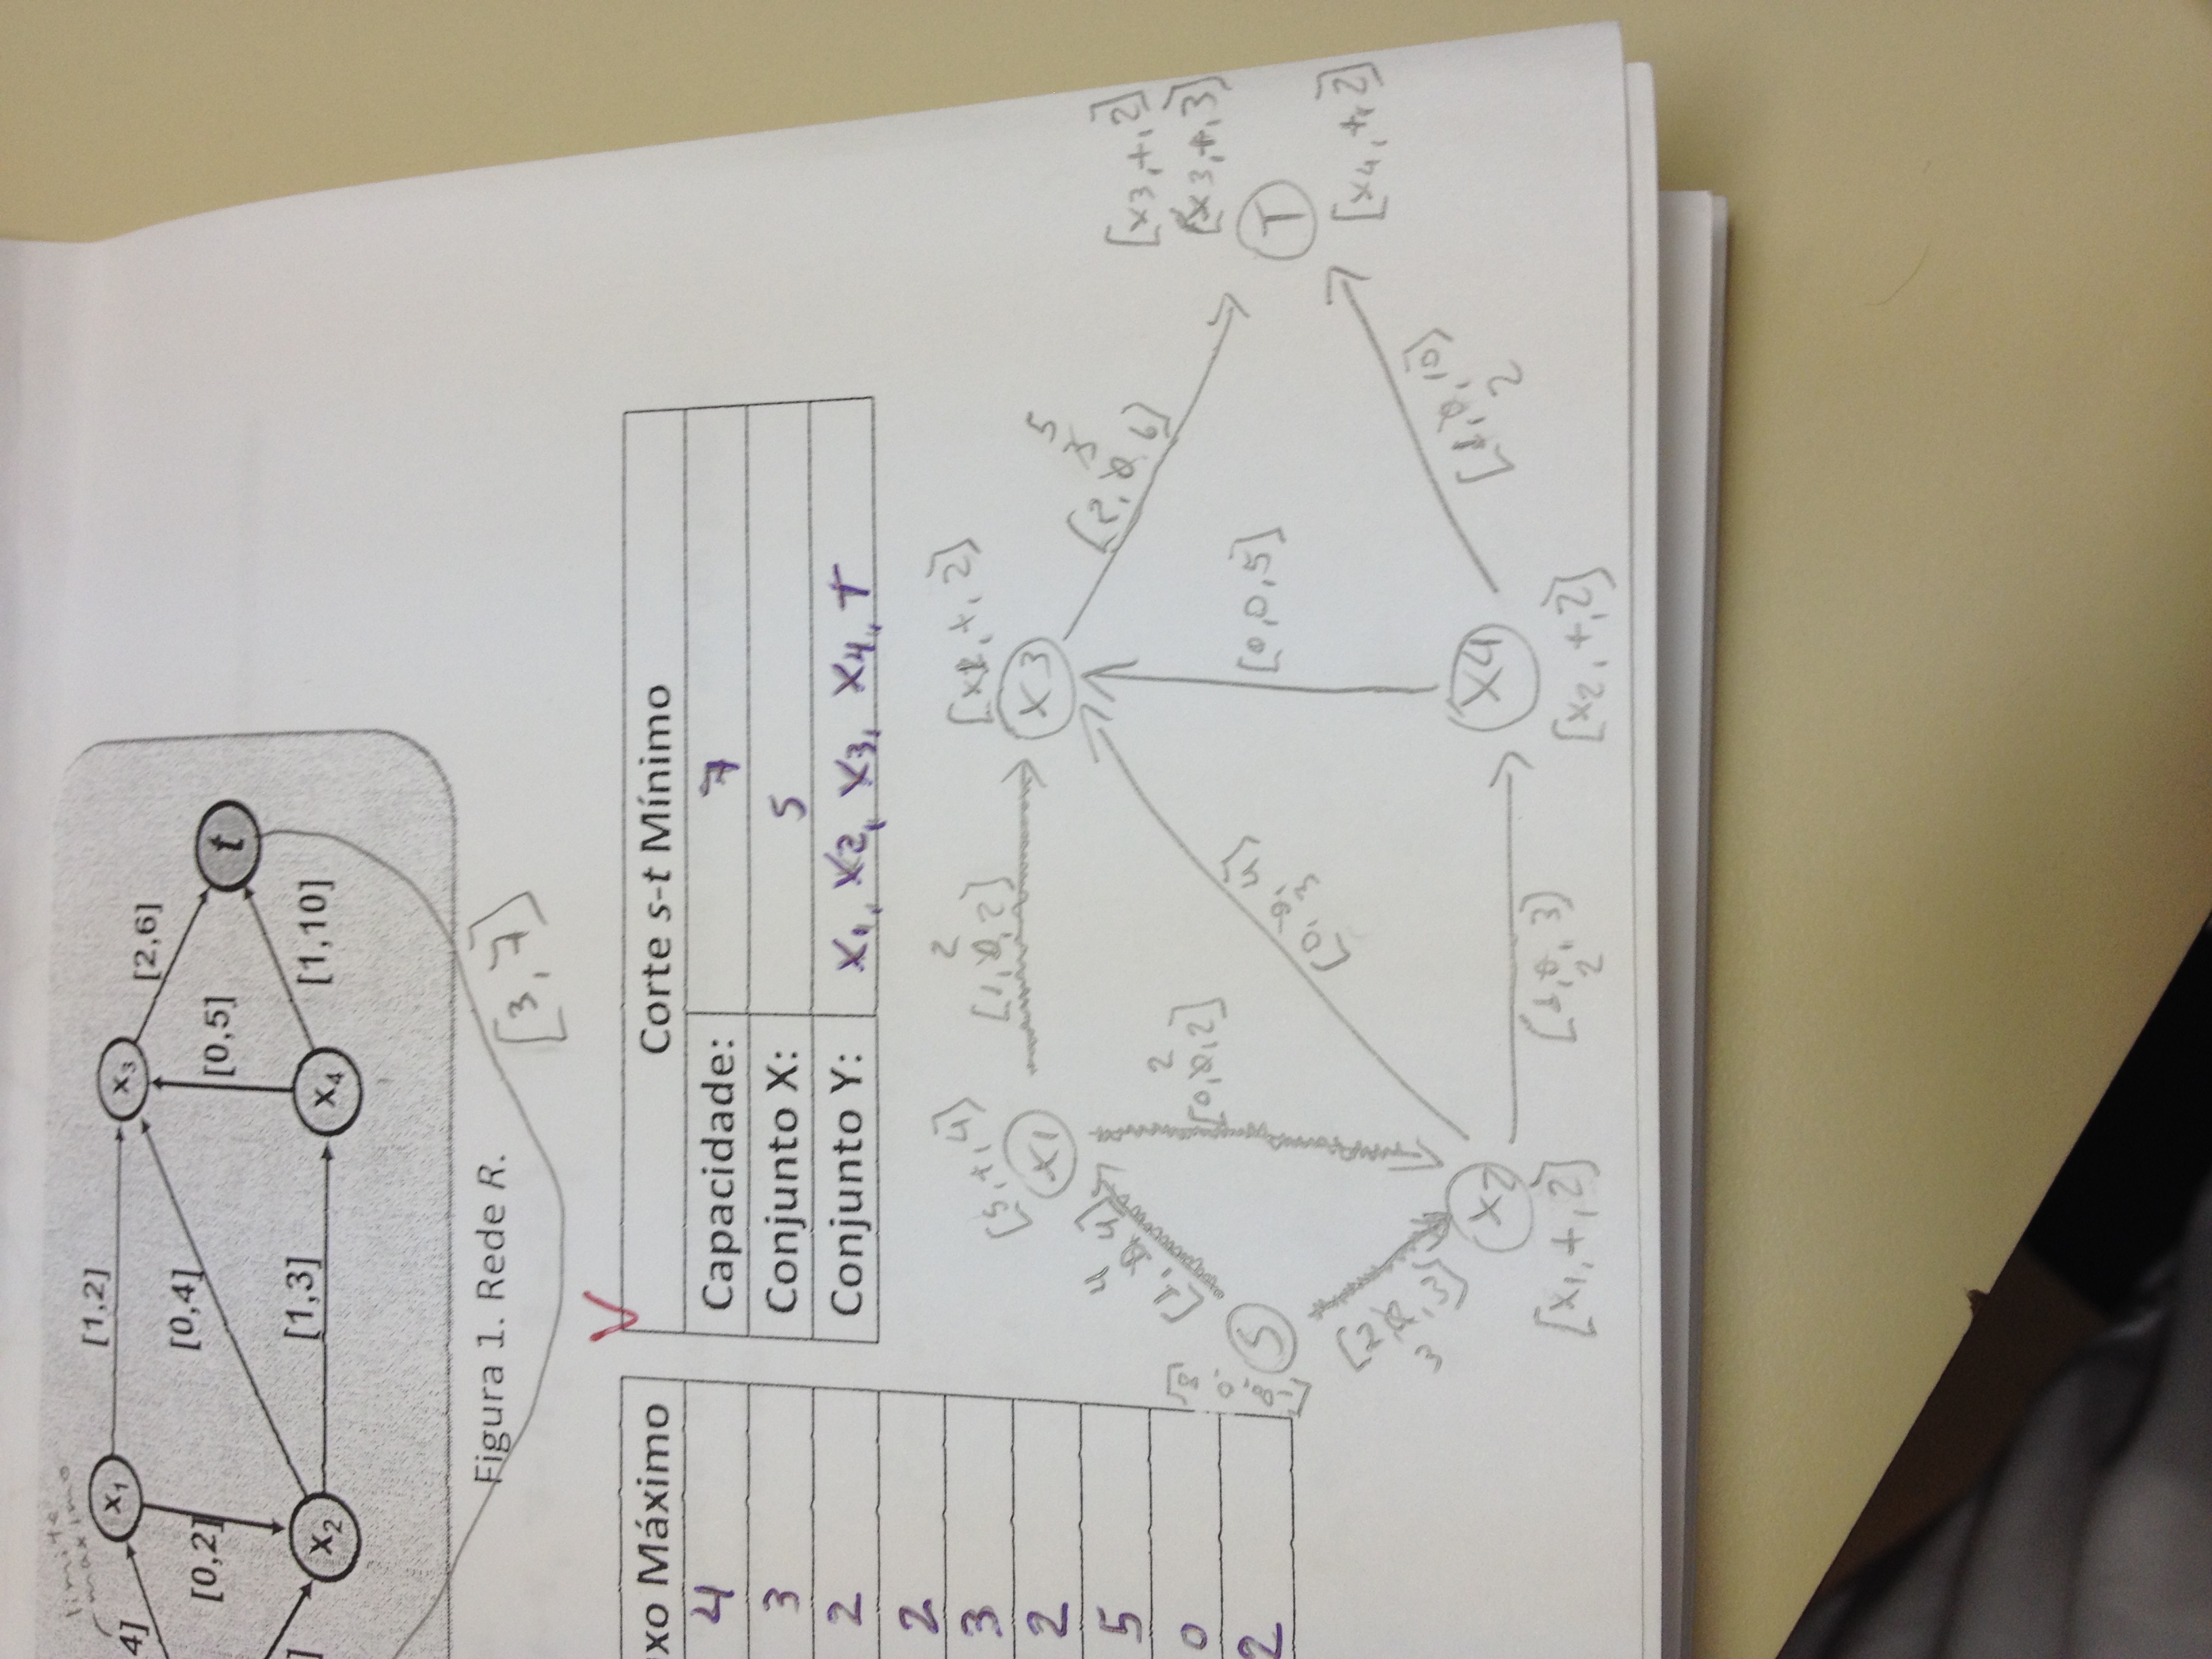 limite
máximo
x1 [1,2] x3
4] [2,6]
[0,2] [0,4] [0,5] t
] x2 [1,3] x4 [1,10]
Figura 1. Rede R.
[3,7]
xo Máximo
4
3
2
2
3
2
5
0
2
Corte s-t Mínimo
Capacidade: 7
Conjunto X: S
Conjunto Y: x1, x2, x3, x4, T
[S,+,4] 2 [x1,+,2]
[1,0,2]
x1 x3
4 5
[1,0,4] [2,0,6]
[x3,+,2]
2 [x3,+,3]
[0,0,2]
[-∞,0,∞] S [0,0,4] [0,0,5] T
3
[2,0,3] [x4,+,2]
3
x2 x4 [1,0,10]
2
[x1,+,2] [1,0,3] [x2,+,2]
2